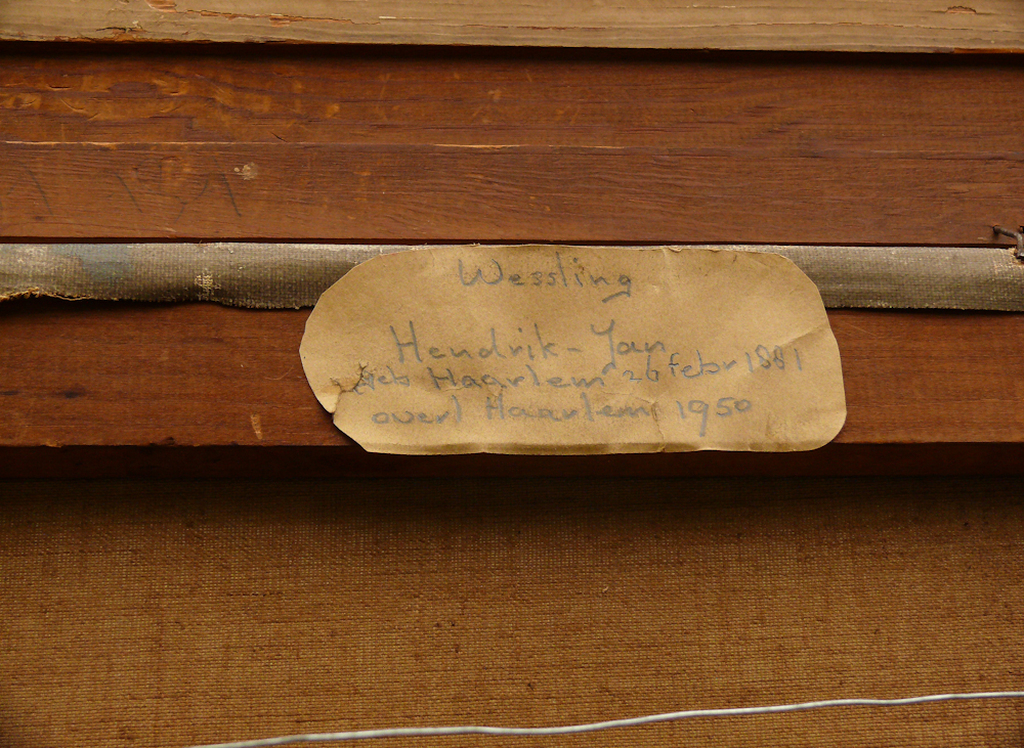 Wessling
Hendrik-Jan
geb Haarlem 26 febr 1881
overl Haarlem 1950